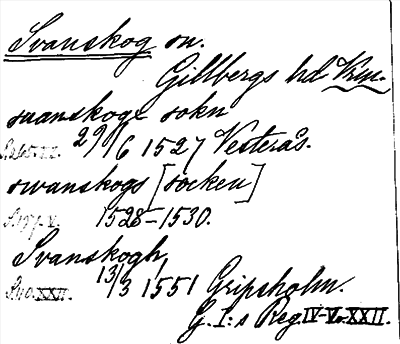 Svanskog sn.
Gillbergs hd Vrm.
suanskoge sokn
S.265.IV. 29/6 1527 Vesterås.
swanskogs [socken]
S.197.V. 1528-1530.
Svanskogh,
S.40.XXII. 13/3 1551 Gripsholm.
G. I:s Reg. IV-V o. XXII.